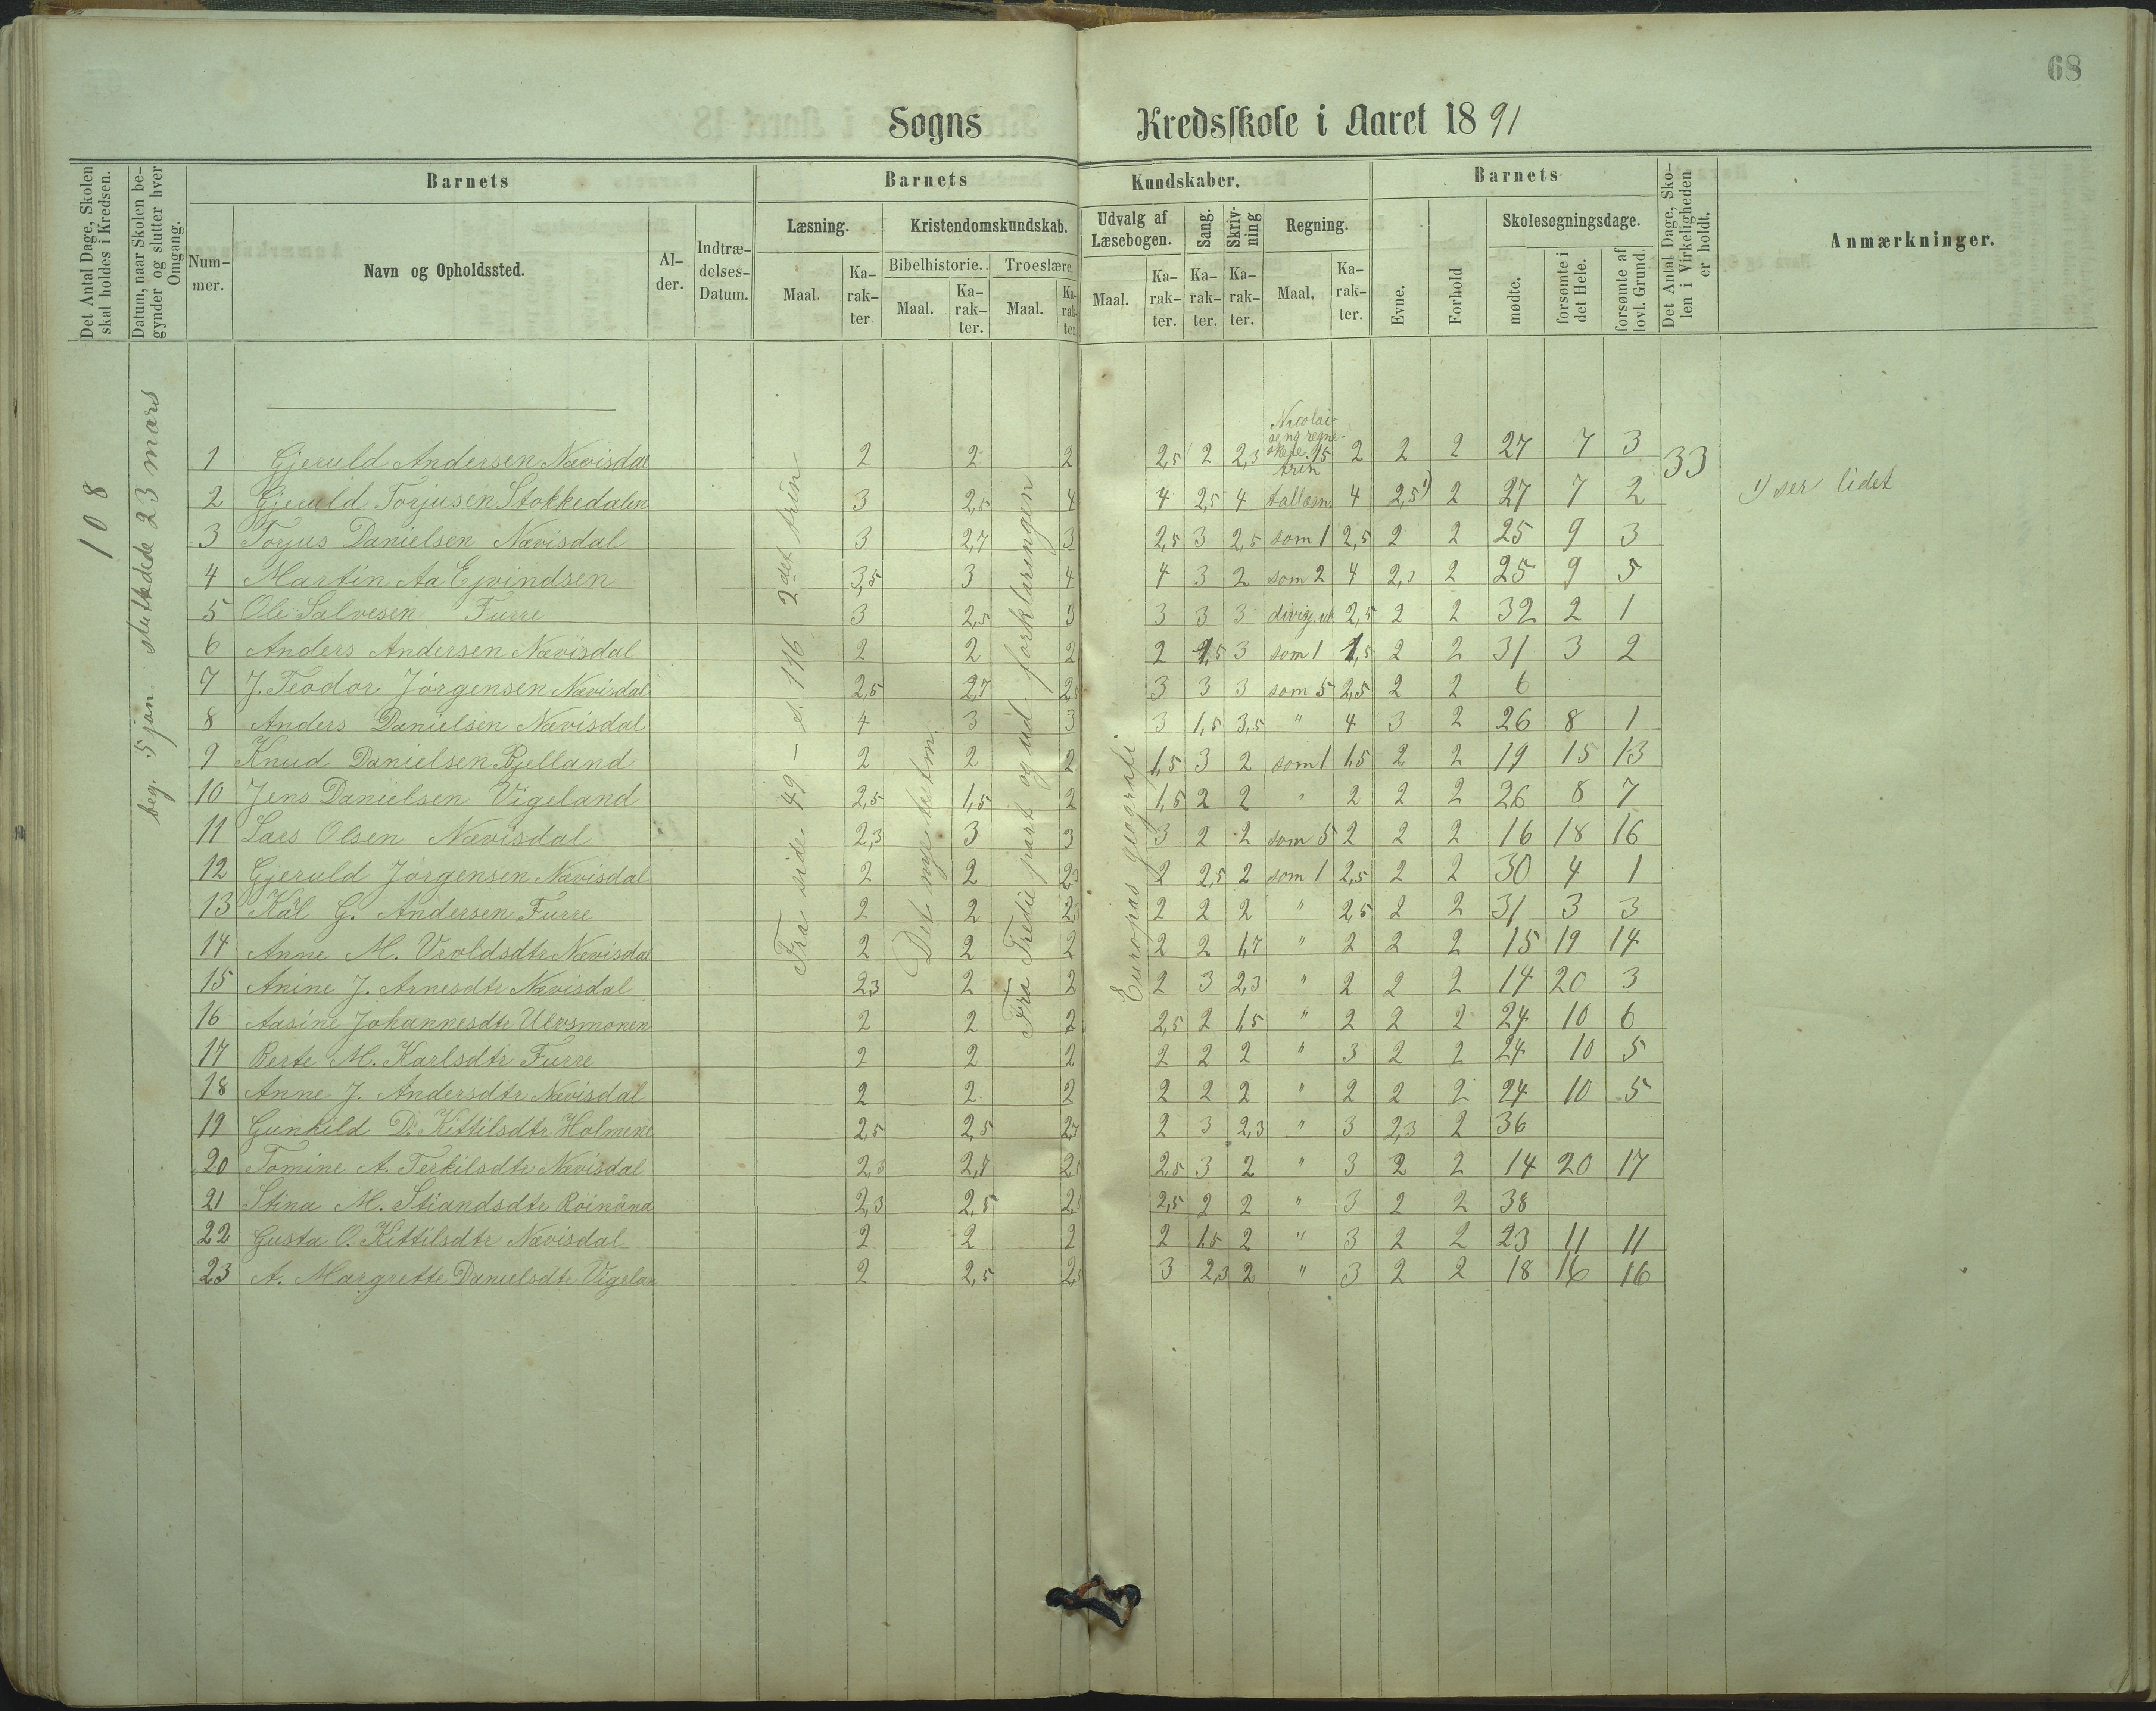 68
Sogns Kredsskole i Aaret 1891
Det Antal Dage, Skolen skal holdes i Kredsen.
Datum, naar Skolen begynder og slutter hver Omgang.
Barnets
Nummer.
Navn og Opholdssted.
Alder.
Indtrædelses-Datum.
Barnets Kundskaber.
Læsning.
Maal.
Karakter.
Kristendomskundskab.
Bibelhistorie.
Maal.
Karakter.
Troeslære.
Maal.
Karakter.
Udvalg af Læsebogen.
Maal.
Karakter.
Sang.
Karakter.
Skrivning
Karakter.
Regning.
Maal.
Karakter.
Barnets
Evne.
Forhold
Skolesøgningsdage.
mødte.
forsømte i det Hele.
forsømte af lovl. Grund.
Det Antal Dage, Skolen i Virkeligheden er holdt.
Anmærkninger.
108
beg. 5 jan. sluttede 23 mars
Fra side 49 – s. 116 2det trin
Det nye testm.
Fra Tredie part og ud forklaringen
Europas geografi
33
1) ser lidet
1 Gjeruld Andersen Nævisdal 2 2 2 2,5 2 2,3 Nicolaisens regneskole 15 trin 2 2 2 27 7 3
2 Gjeruld Torjusen Stokkedalen 3 2,5 4 4 2,5 4 tallæren 4 2,5 1) 2 27 7 2
3 Torjus Danielsen Nævisdal 3 2,7 3 2,5 3 2,5 som 1 2,5 2 2 25 9 3
4 Martin Aa Ejvindsen 3,5 3 4 4 3 2 som 2 4 2,3 2 25 9 5
5 Ole Salvesen Furre 3 2,5 3 3 3 3 2,5 2 2 32 2 1
6 Anders Andersen Nævisdal 2 2 2 2 1,5 3 som 1 1,5 2 2 31 3 2
7 J. Teodor Jörgensen Nævisdal 2,5 2,7 2,5 3 3 3 som 5 2,5 2 2 6
8 Anders Danielsen Nævisdal 4 3 3 3 1,5 3,5 " 4 3 2 26 8 1
9 Knud Danielsen Bjelland 2 2 2 1,5 3 2 som 1 1,5 2 2 19 15 13
10 Jens Danielsen Vigeland 2,5 1,5 2 1,5 2 2 " 2 2 2 26 8 7
11 Lars Olsen Nævisdal 2,3 3 3 3 2 2 som 5 2 2 2 16 18 16
12 Gjeruld Jörgensen Nævisdal 2 2 2,3 2 2,5 2 som 1 2,5 2 2 30 4 1
13 Kal G. Andersen Furre 2 2 2,5 2 2 2 " 2,5 2 2 31 3 3
14 Anne M. Vroldsdtr Nævisdal 2 2 2 2 2 1,7 " 2 2 2 15 19 14
15 Anine J. Arnesdtr Nævisdal 2,3 2 2 2 3 2,3 " 2 2 2 14 20 3
16 Aasine Johannesdtr Ulvsmonen 2 2 2 2,5 2 1,5 " 2 2 2 24 10 6
17 Berte M. Karlsdtr Furre 2 2 2 2 2 2 " 3 2 2 24 10 5
18 Anne J. Andersdtr Nævisdal 2 2 2 2 2 2 " 2 2 2 24 10 5
19 Gunhild D. Kittilsdtr Holmene 2,5 2,5 2,7 2 3 2,3 " 3 2,3 2 36
20 Tomine A. Terkilsdtr Nævisdal 2,3 2,7 2,5 2,5 3 2 " 3 2 2 14 20 17
21 Stina M. Stiandsdtr Röinåna 2,3 2,5 2,5 2,5 2 2 " 3 2 2 38
22 Gusta O. Kittilsdtr Nævisdal 2 2 2 2 1,5 2 " 3 2 2 23 11 11
23 A. Margrette Danielsdtr Vigelan 2 2,5 2,5 3 2,3 2 " 3 2 2 18 16 16